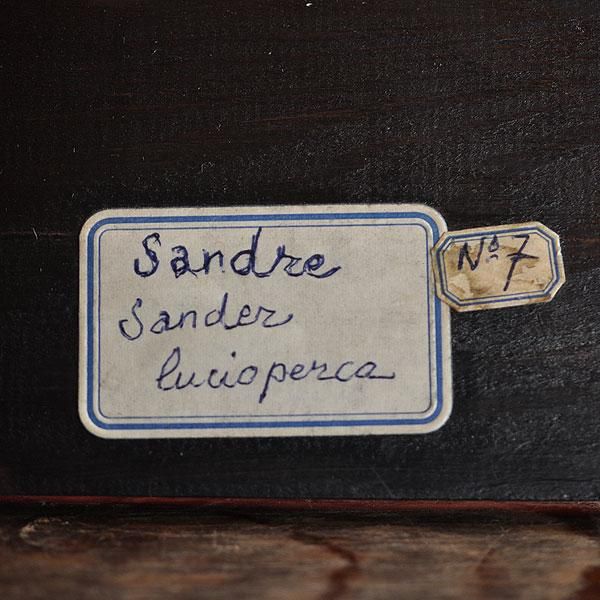 Sandre
Sander
lucioperca
Nº 7